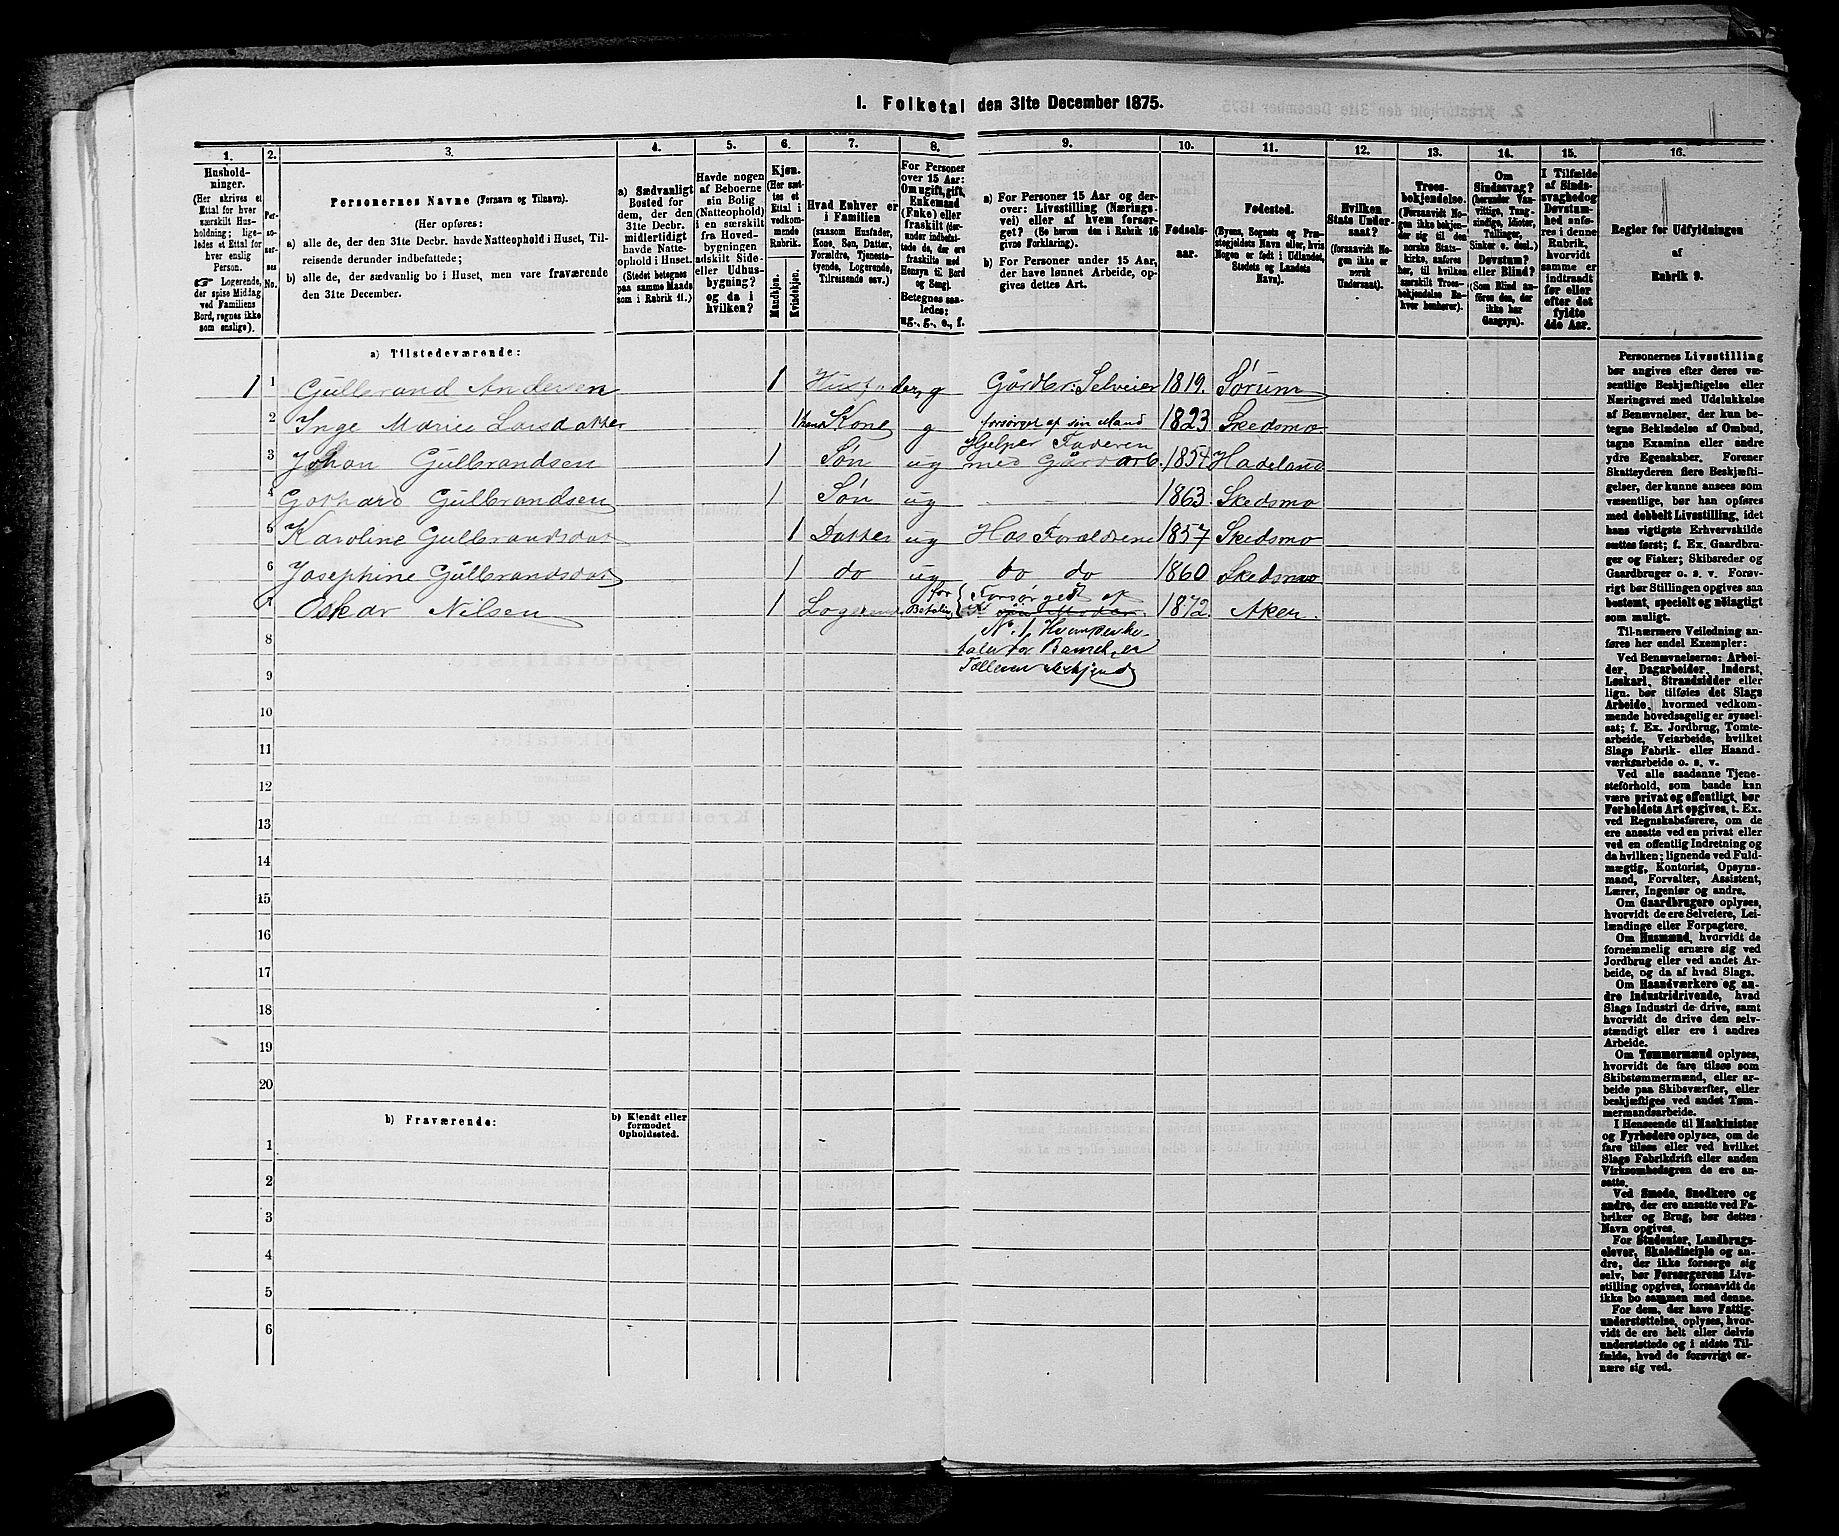 1. Folketal den 31te December 1875.
1. 2. 3. 4. 5. 6. 7. 8. 9. 10. 11. 12. 13. 14. 15. 16.
Hushold-
ninger.
(Her skrives et
Ettal for hver
særskilt Hus-
holdning; lige-
ledes et Ettal for
hver enslig
Person.
Logerende,
der spise Middag
ved Familiens
Bord, regnes ikke
som enslige).
Per-
so-
ner-
nes
No.
Personernes Navne (Fornavn og Tilnavn).
(Her opføres:
a) alle de, der den 31te Decbr. havde Natteophold i Huset, Til-
reisende derunder indbefattede;
b) alle de, der sædvanlig bo i Huset, men vare fraværende
den 31te December.
a) Sædvanligt
Bosted for
dem, der den
31te Decbr.
midlertidigt
havde Natte-
ophold i Huset.
(Stedet betegnes
paa samme Maade
som i Rubrik 11.)
Havde nogen
af Beboerne
sin Bolig
(Natteophold)
i en særskilt
fra Hoved-
bygningen
adskilt Side-
eller Udhus-
bygning?
og da i
hvilken?
Kjøn.
(Her sæt-
tes et
Ettal i
vedkom-
mende
Rubrik.
Mandkjøn.
Kvindekjøn.
Hvad Enhver er
i Familien
(saasom Husfader,
Kone, Søn, Datter,
Forældre, Tjeneste-
tyende, Logerende,
Tilreisende osv.)
For Personer
over 15 Aar:
Om ugift, gift,
Enkemand
(Enke) eller
fraskilt (der-
under indbefat-
tede de, der ere
fraskilte med
Hensyn til Bord
og Seng).
Betegnes saa-
ledes:
ug., g., e., f.
a) For Personer 15 Aar og der-
over: Livsstilling (Nærings-
vei) eller af hvem forsør-
get? (Se herom den i Rubrik 16
givne Forklaring).
b) For Personer under 15 Aar,
der have lønnet Arbeide, op-
gives dettes Art.
Fødsels-
aar.
Fødested.
(Byens, Sognets og Præ-
stegjeldets Navn eller, hvis
Nogen er født i Udlandet,
Stedets og Landets
Navn).
Hvilken
Stats Under-
saat?
(forsaavidt No-
gen ikke er
norsk
Undersaat).
Troes-
bekjendelse.
(Forsaavidt No-
gen ikke beken-
der sig til den
norske Stats-
kirke, anføres
her, til hvilken
særskilt Troes-
bekjendelse En-
hver henhører).
Om
Sindssvag?
(herunder Van-
vittige, Tung-
sindige, Idioter,
Tullinger,
Sinker o. desl.)
Døvstum?
eller Blind?
(Som Blind an-
føres den, der
ikke har
Gangsyn).
I Tilfælde
af Sinds-
svaghed og
Døvstum-
hed anfø-
res i denne
Rubrik,
hvorvidt
samme er
indtraadt
før eller
efter det
fyldte
4de Aar.
Regler for Udfyldningen
af
Rubrik 9.
a) Tilstedeværende:
1 1 Gulbrand Andersen 1 Husfader g Gårdbr. Selveier 1819. Sørum
2 Inge Marie Larsdatter 1 hans Kone g forsørget af sin Mand 1823 Skedsmo
3 Johan Gulbrandsen 1 Søn ug Hjelper Faderen
med Gårdarb. 1854 Hadeland
4 Gothard Gulbrandsen 1 Søn ug 1863. Skedsmo
5 Karoline Gulbrandsdat 1 Datter ug Hos Forældrene 1857 Skedsmo
6 Josephine Gulbrandsdat 1 do ug do do 1860 Skedsmo
7 Oskar Nilsen 1 Logerende for
Betaling Forsørget af
sin Moder 1872. Aker.
8 No. 1, Hvem, som be-
taler for Barnet, er
9 Tælleren ubekjendt
10
11
12
13
14
15
16
17
18
19
20
b) Fraværende:
b) Kjendt eller
formodet
Opholdssted.
1
2
3
4
5
6
Personernes Livsstilling
bør angives efter deres væ-
sentlige Beskjæftigelse eller
Næringsvei med Udelukkelse
af Benævnelser, der kun be-
tegne Beklædelse af Ombud,
tagne Examina eller andre
ydre Egenskaber. Forener
Skatteyderen flere Beskjæfti-
gelser, der kunne ansees som
væsentlige, bør han opføres
med dobbelt Livsstilling, idet
hans vigtigste Erhvervskilde
sættes først; f. Ex. Gaardbru-
ger og Fisker; Skibsreder og
Gaardbruger o. s. v. Forøv-
rigt bør Stillingen opgives saa
bestemt, specielt og nøiagtigt
som muligt.
Til nærmere Veiledning an-
føres her endel Exempler:
Ved Benævnelserne: Arbei-
der, Dagarbeider, Inderst,
Løskarl, Strandsidder eller
lign. bør tilføies det Slags
Arbeide, hvormed vedkom-
mende hovedsagelig er syssel-
sat; f. Ex. Jordbrug, Tomte-
arbeide, Veiarbeide, hvilket
Slags Fabrik- eller Haand-
værksarbeide o. s. v.
Ved alle saadanne Tjene-
steforhold, som baade kan
være privat og offentligt, bør
Forholdets Art opgives, t. Ex.
ved Regnskabsførere, om de
ere ansatte ved en privat eller
ved en offentlig Indretning og
da hvilken; lignende ved Fuld-
mægtig, Kontorist, Opsyns-
mand, Forvalter, Assistent,
Lærer, Ingeniør og andre.
Om Gaardbrugere oplyses,
hvorvidt de ere Selveiere, Lei-
lændinge eller Forpagtere.
Om Husmænd, hvorvidt de
fornemmelig ernære sig ved
Jordbrug eller ved andet Ar-
beide, og da af hvad Slags.
Om Haandværkere og an-
dre industridrivende, hvad
Slags Industri de drive, samt
hvorvidt de drive den selv-
stændigt eller ere i andres
Arbeide.
Om Tømmermænd oplyses,
hvorvidt de fare tilsøs som
Skibstømmermænd, eller ar-
beide paa Skibsværfter, eller
beskjæftiges ved andet Tøm-
mermandsarbeide.
I Henseende til Maskinister
og Fyrbødere oplyses, om de
fare tilsøs eller ved hvilket
Slags Fabrikdrift eller anden
Virksomhedsgren de ere an-
satte.
Ved Smede, Snedkere og
andre, der ere ansatte ved Fa-
briker og Brug, bør dettes
Navn opgives.
For Studenter, Landbrugs-
elever, Skoledisciple og an-
dre, der ikke forsørge sig
selv, bør Forsørgerens Livs-
stilling opgives, forsaavidt de
ikke bo sammen med denne.
For dem, der have Fattig-
understøttelse, oplyses, hvor-
vidt de ere helt eller delvis
understøttede og i sidste Til-
fælde, hvad de forøvrigt er-
nære sig ved.